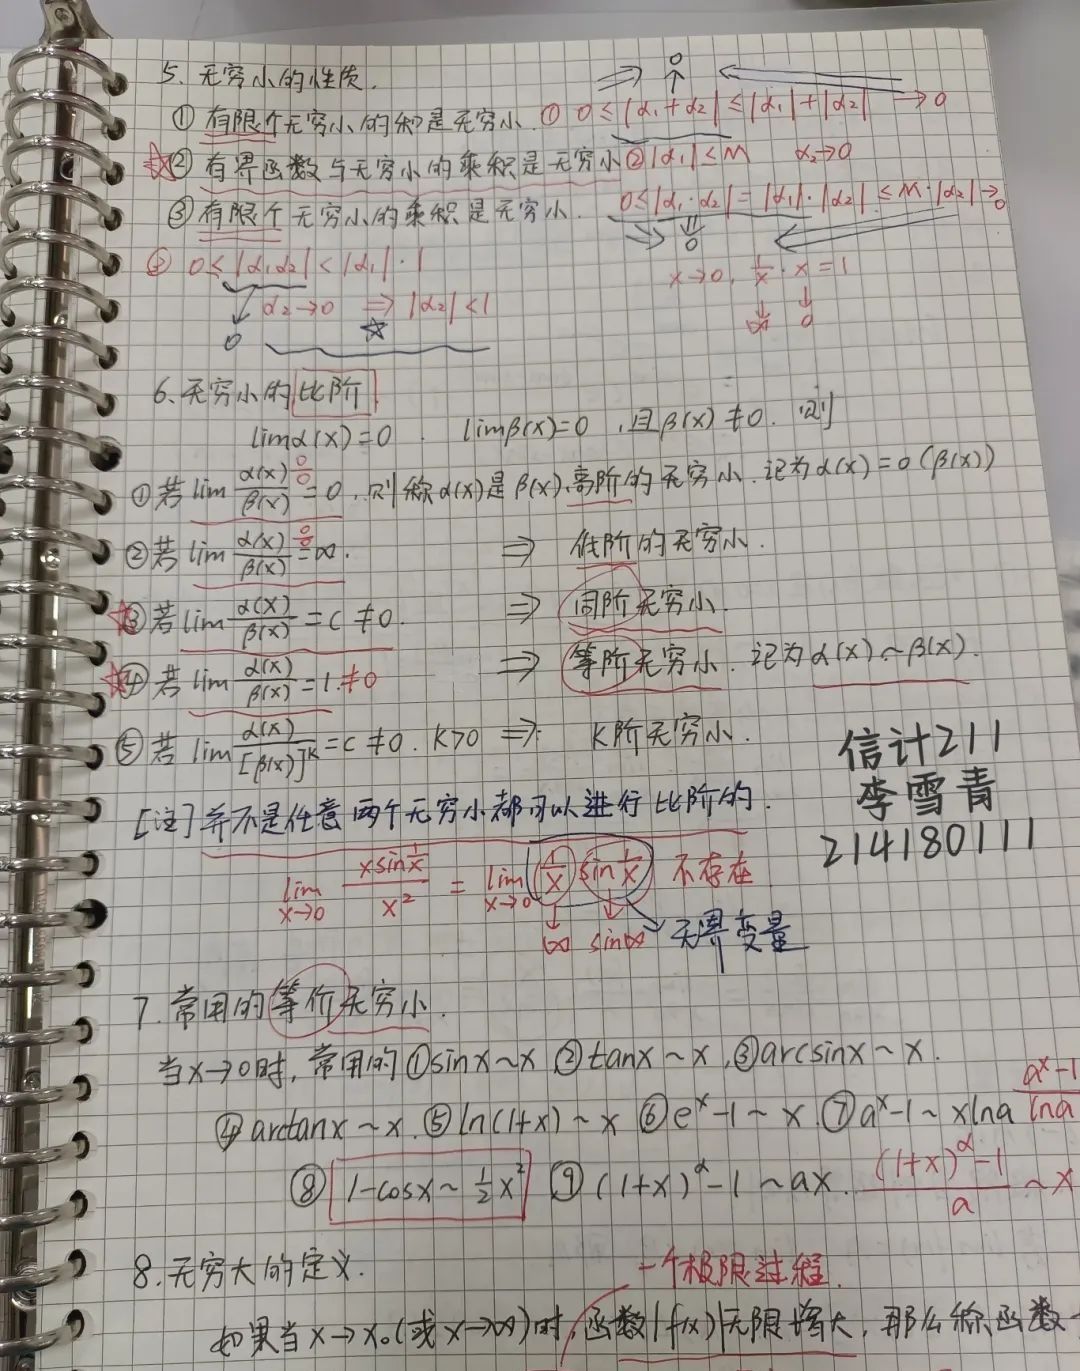 5. 无穷小的性质.
0
① 有限个无穷小的和是无穷小. ① 0≤|α₁+α₂|≤|α₁|+|α₂| →0
☆② 有界函数与无穷小的乘积是无穷小 ②|α₁|≤M α₂→0
③ 有限个无穷小的乘积是无穷小. 0≤|α₁·α₂|=|α₁|·|α₂|≤M·|α₂|→0
0
③ 0≤|α₁α₂|<|α₁|·1 x→0, 1/x · x = 1
α₂→0 ⇒ |α₂|<1 ∞ 0
0 ☆
6. 无穷小的比阶
limα(x)=0. limβ(x)=0, 且β(x)≠0. 则
① 若 lim α(x)/β(x) 0/0 = 0, 则称α(x)是β(x)高阶的无穷小. 记为α(x)=o(β(x))
② 若 lim α(x)/β(x) 0/0 = ∞. ⇒ 低阶的无穷小.
☆③ 若 lim α(x)/β(x) = C ≠0. ⇒ 同阶无穷小.
☆④ 若 lim α(x)/β(x) = 1.≠0 ⇒ 等阶无穷小. 记为α(x)~β(x).
⑤ 若 lim α(x)/[β(x)]^K = C ≠0. K>0 ⇒ K阶无穷小.
信计211
李雪青
214180111
[注] 并不是任意两个无穷小都可以进行比阶的.
lim x→0 xsin1/x / x² = lim x→0 1/x sin1/x 不存在
∞ sin∞ 无界变量
7. 常用的等价无穷小.
当x→0时, 常用的①sinx~x ②tanx~x, ③arcsinx~x.
④arctanx~x. ⑤ln(1+x)~x ⑥eˣ-1~x ⑦aˣ-1~xlna aˣ-1/lna
⑧ 1-cosx~½x² ⑨(1+x)^α-1~ax. (1+x)^α-1/a ~x
8. 无穷大的定义. 一个极限过程.
如果当x→x₀(或x→∞)时, 函数|f(x)|无限增大, 那么称函数